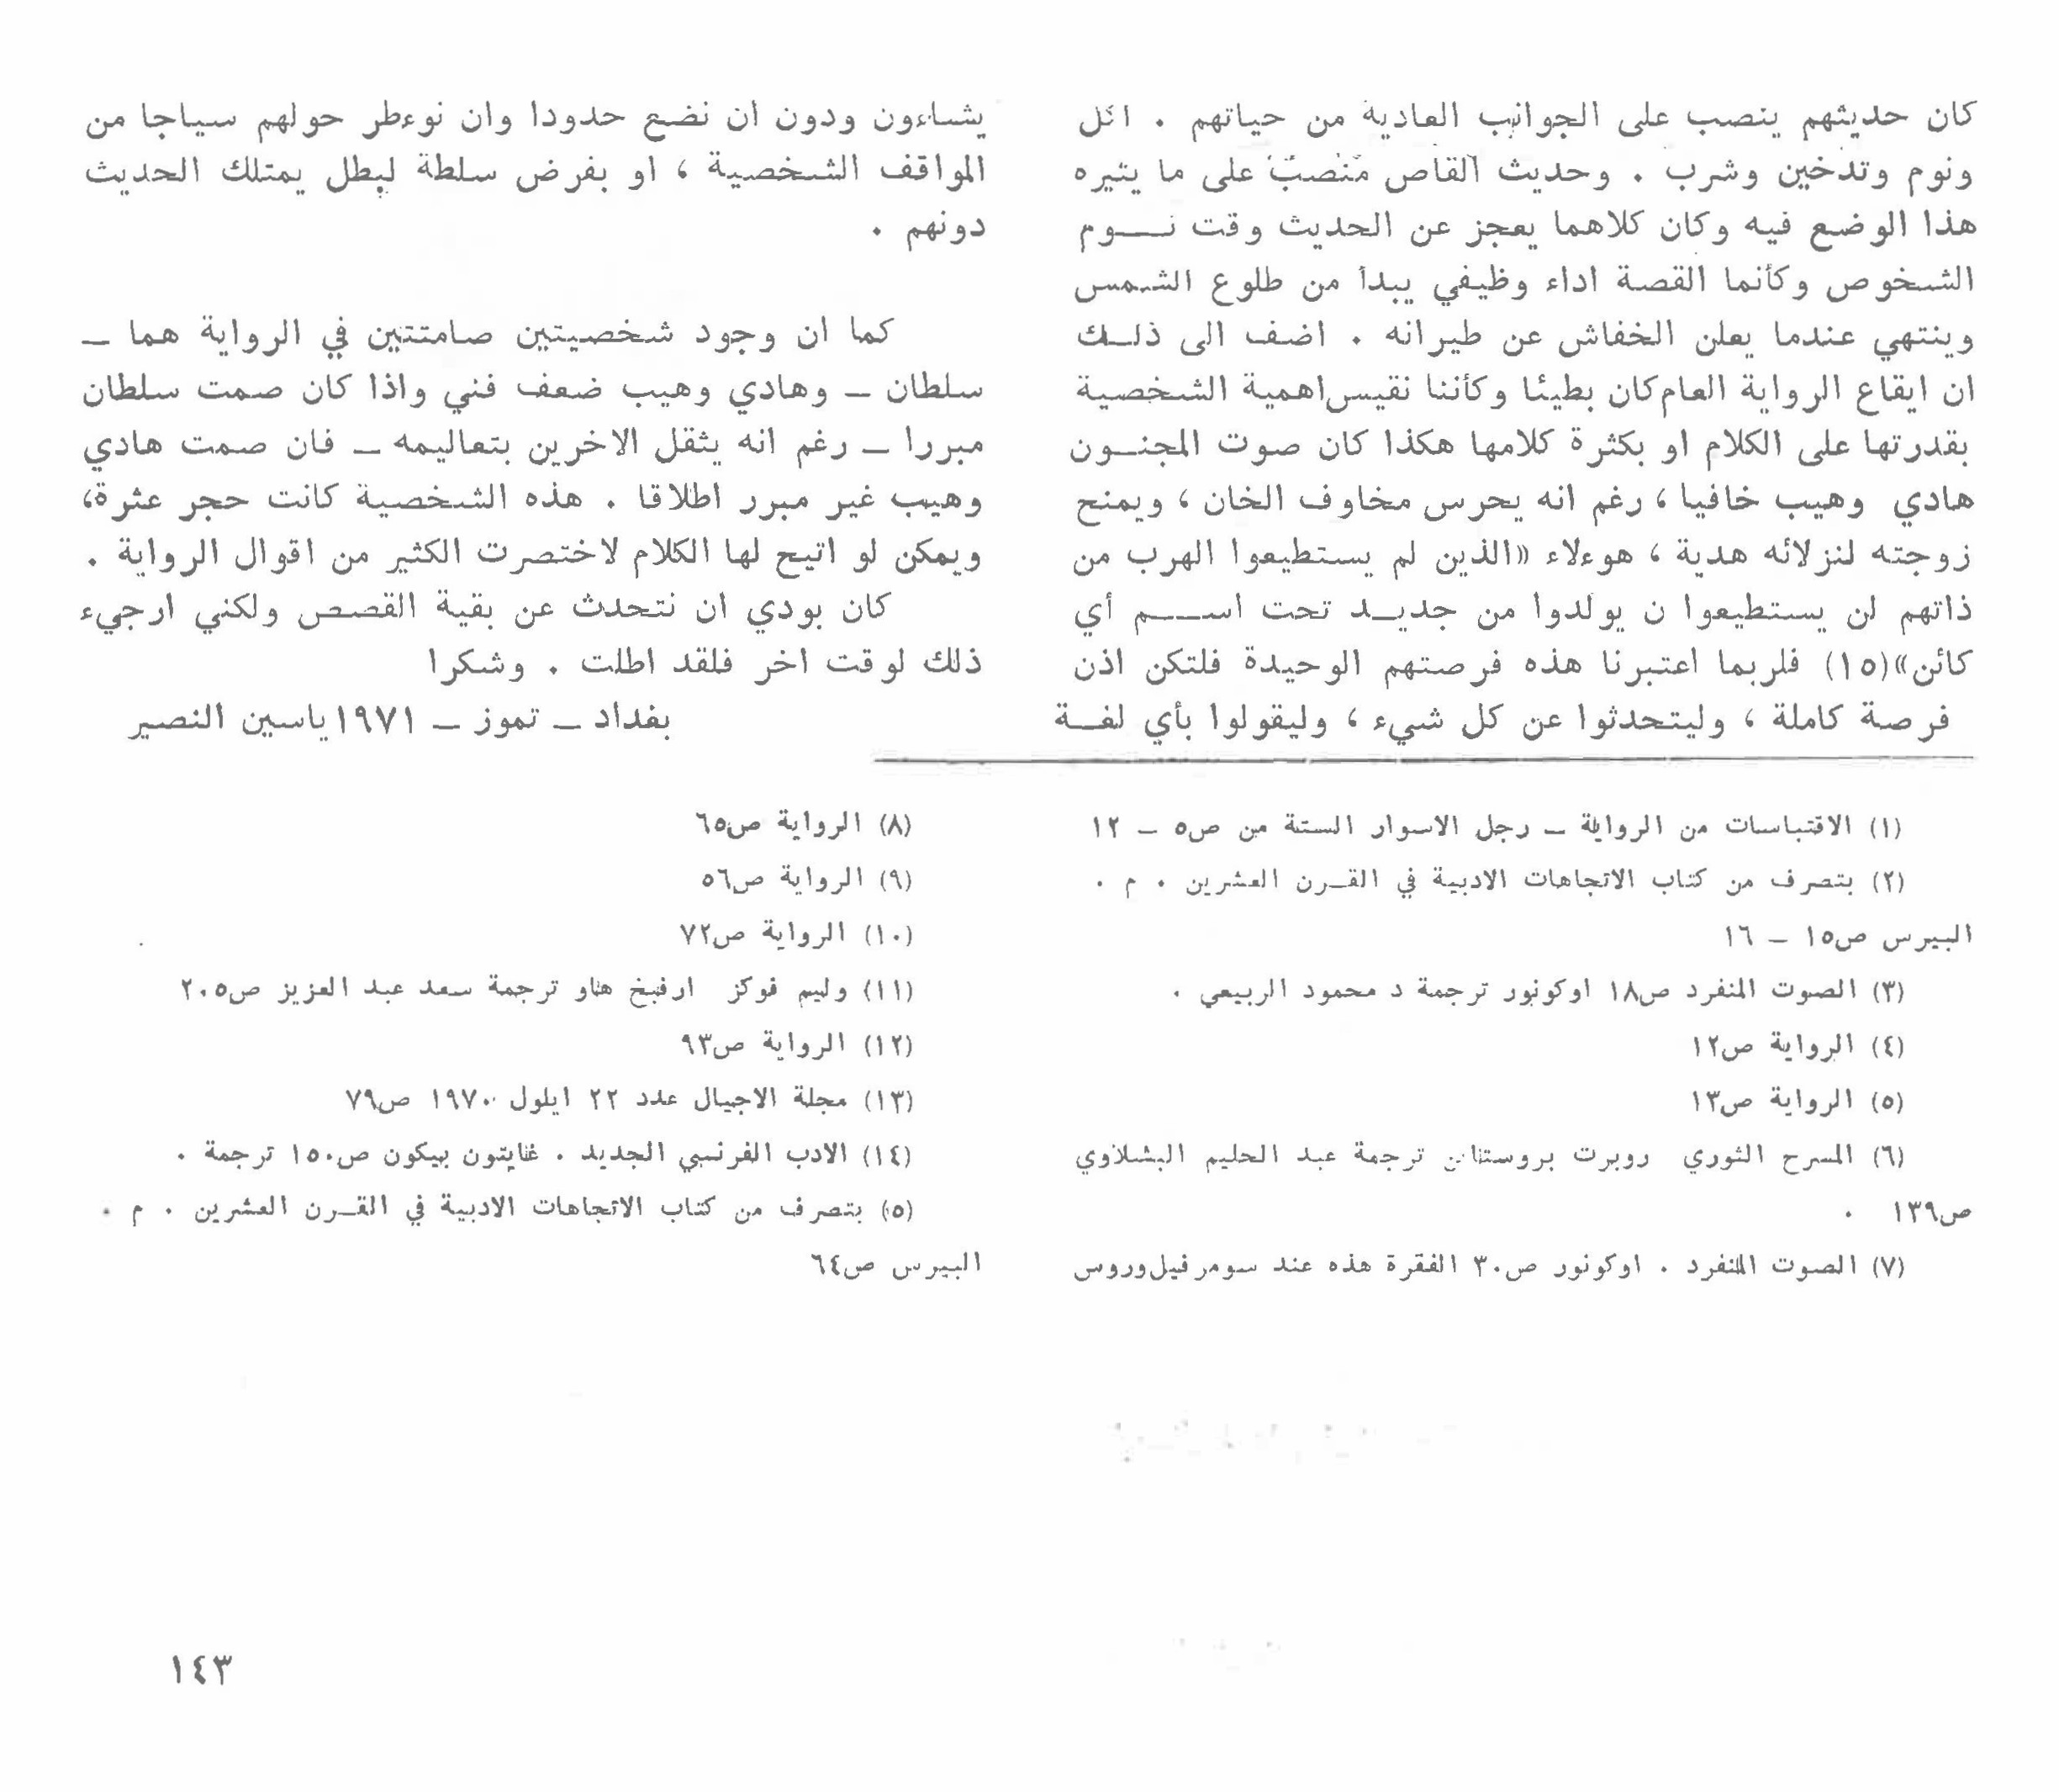 كان حديثهم ينصب على الجوانب العادية من حياتهم . اكل
ونوم وتدخين وشرب . وحديث القاص منصب على ما يثيره
هذا الوضع فيه وكان كلاهما يعجز عن الحديث وقت نــوم
الشخوص وكأنما القصة اداء وظيفي يبدأ من طلوع الشمس
وينتهي عندما يعلن الخفاش عن طيرانه . اضف الى ذلــك
ان ايقاع الرواية العام كان بطيئا وكأننا نقيس اهمية الشخصية
بقدرتها على الكلام او بكثرة كلامها هكذا كان صوت المجنــون
هادي وهيب خافيا ، رغم انه يحرس مخاوف الخان ، ويمنح
زوجته لنزلائه هدية ، هوءلاء «الذين لم يستطيعوا الهرب من
ذاتهم لن يستطيعوا ن يولدوا من جديــد تحت اســــم أي
كائن»(١٥) فلربما اعتبرنا هذه فرصتهم الوحيدة فلتكن اذن
فرصة كاملة ، وليتحدثوا عن كل شيء ، وليقولوا بأي لغــة
يشاءون ودون ان نضع حدودا وان نوءطر حولهم سياجا من
المواقف الشخصية ، او بفرض سلطة لبطل يمتلك الحديث
دونهم .
كما ان وجود شخصيتين صامتتين في الرواية هما –
سلطان – وهادي وهيب ضعف فني واذا كان صمت سلطان
مبررا – رغم انه يثقل الاخرين بتعاليمه – فان صمت هادي
وهيب غير مبرر اطلاقا . هذه الشخصية كانت حجر عثرة،
ويمكن لو اتيح لها الكلام لاختصرت الكثير من اقوال الرواية .
كان بودي ان نتحدث عن بقية القصص ولكني ارجيء
ذلك لوقت اخر فلقد اطلت . وشكرا
بغداد – تموز – ١٩٧١ ياسين النصير
(١) الاقتباسات من الرواية – رجل الاسوار الستة من ص٥ – ١٢
(٢) بتصرف من كتاب الاتجاهات الادبية في القــرن العشرين . م .
البيرس ص١٥ – ١٦
(٣) الصوت المنفرد ص١٨ اوكونور ترجمة د محمود الربيعي .
(٤) الرواية ص١٢
(٥) الرواية ص١٣
(٦) المسرح الثوري روبرت بروستاين ترجمة عبد الحليم البشلاوي
ص١٣٩ .
(٧) الصوت المنفرد . اوكونور ص٣٠ الفقرة هذه عند سومرفيل وروس
(٨) الرواية ص٦٥
(٩) الرواية ص٥٦
(١٠) الرواية ص٧٢
(١١) وليم فوكز ارفبخ هاو ترجمة سعد عبد العزيز ص٢٠٥
(١٢) الرواية ص٩٣
(١٣) مجلة الاجيال عدد ٢٢ ايلول ١٩٧٠ ص٧٩
(١٤) الادب الفرنسي الجديد . غايتون بيكون ص١٥٠ ترجمة .
(٥) بتصرف من كتاب الاتجاهات الادبية في القــرن العشرين . م .
البيرس ص٦٤
١٤٣